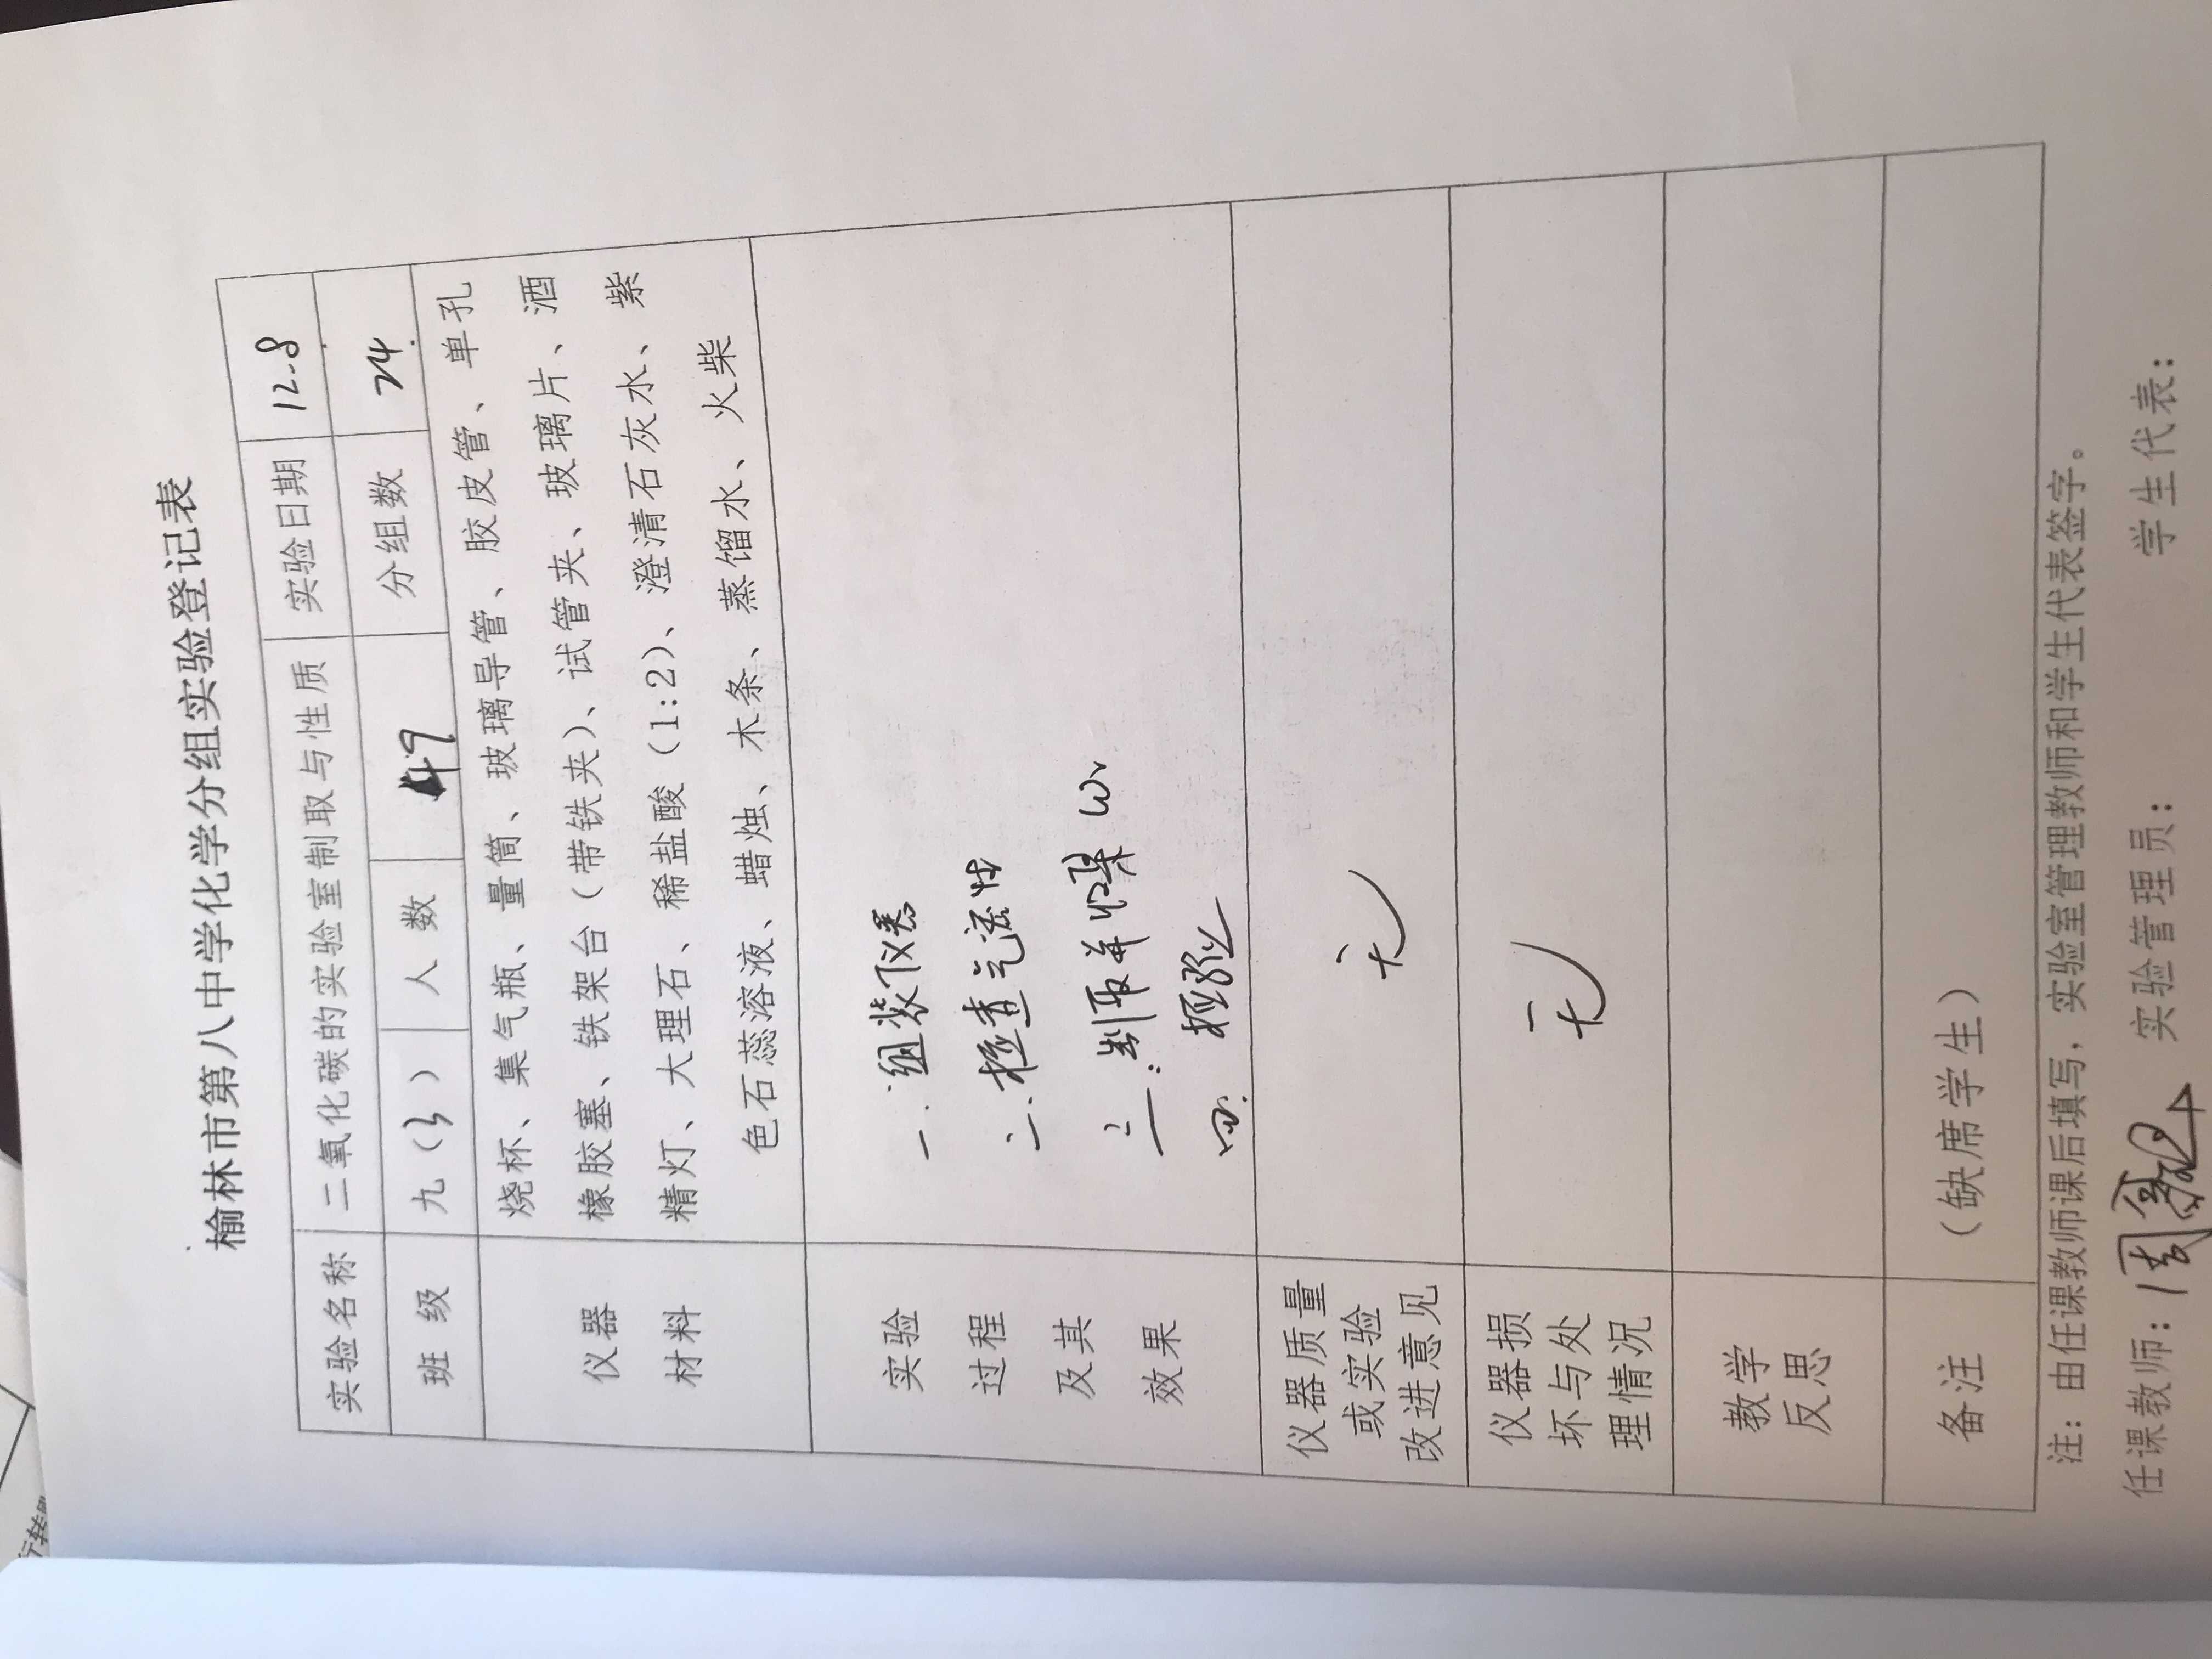 榆林市第八中学化学分组实验登记表
实验名称 二氧化碳的实验室制取与性质 实验日期 12.8
班 级 九(3) 人 数 49 分组数 24.
仪器
材料
烧杯、集气瓶、量筒、玻璃导管、胶皮管、单孔
橡胶塞、铁架台（带铁夹）、试管夹、玻璃片、酒
精灯、大理石、稀盐酸（1:2）、澄清石灰水、紫
色石蕊溶液、蜡烛、木条、蒸馏水、火柴
实验
过程
及其
效果
一.组装仪器
二.检查气密性
三.制取并收集CO₂
四.检验
仪器质量
或实验
改进意见
无
仪器损
坏与处
理情况
无
教学
反思
备注 （缺席学生）
注：由任课教师课后填写，实验室管理教师和学生代表签字。
任课教师：周 实验管理员： 学生代表：